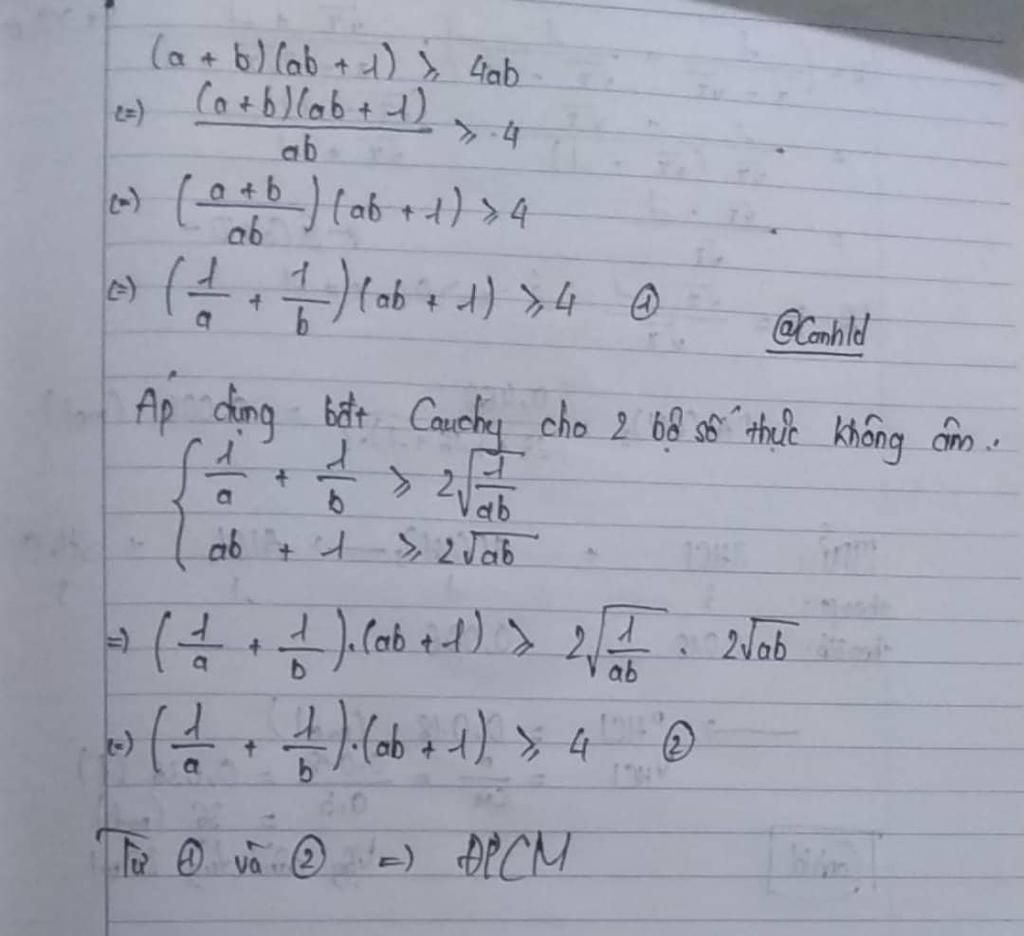 (a + b)(ab + 1) ≥ 4ab
<=> (a + b)(ab + 1) / ab ≥ 4
<=> (a + b / ab)(ab + 1) ≥ 4
<=> (1/a + 1/b)(ab + 1) ≥ 4 ①
@Canhld
Áp dụng bđt Cauchy cho 2 bộ số thực không âm.
{ 1/a + 1/b ≥ 2√(1/ab)
ab + 1 ≥ 2√ab
=> (1/a + 1/b).(ab + 1) ≥ 2√(1/ab) . 2√ab
<=> (1/a + 1/b).(ab + 1) ≥ 4 ②
Từ ① và ② => ĐPCM